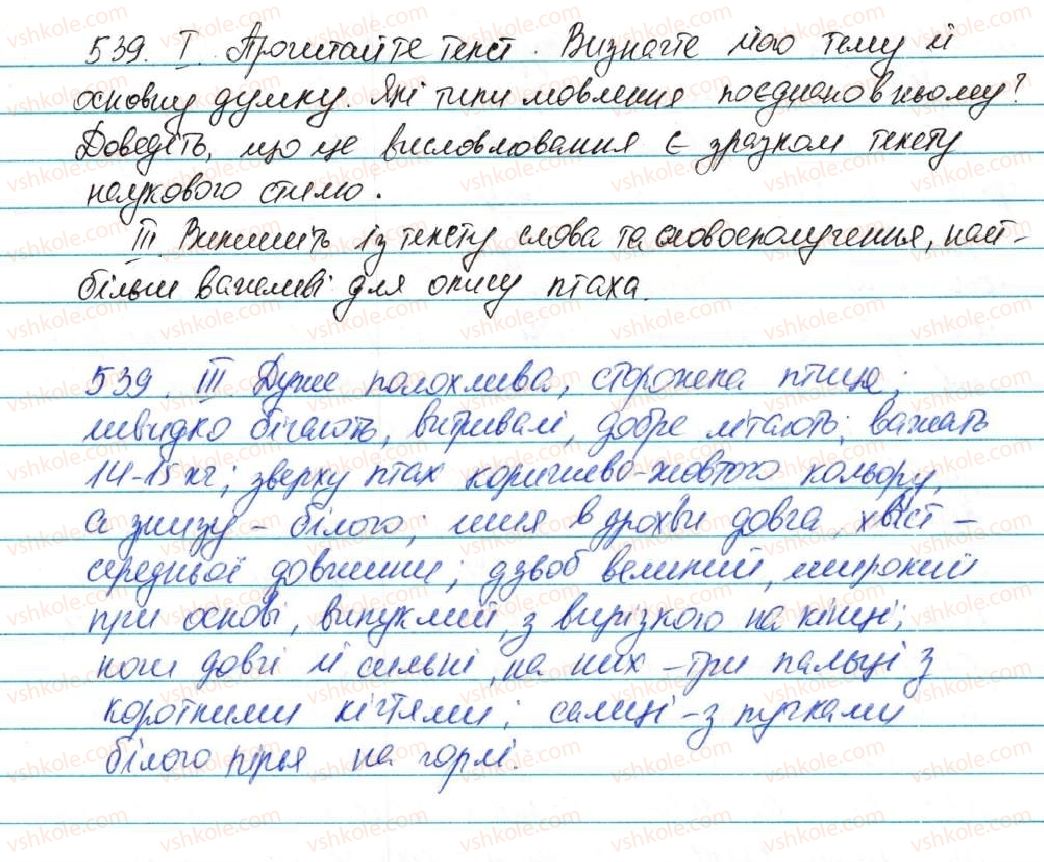 539. І. Прочитайте текст. Визначте його тему й
основну думку. Які типи мовлення поєднано в ньому?
Доведіть, що це висловлювання є зразком тексту
наукового стилю.
ІІІ. Випишіть із тексту слова та словосполучення, най-
більш важливі для опису птаха.
539. ІІІ Дуже полохлива, сторожена птиця;
швидко бігають, витривалі, добре літають; важать
14-15 кг; зверху птах коричнево-жовтого кольору,
а знизу – білого; шия в дрохви довга, хвіст –
середньої довжини; дзьоб великий, широкий
при основі, випуклий, з вирізкою на кінці;
ноги довгі й сильні, на них – три пальці з
короткими кігтями; самці – з пучками
білого пір'я на горлі.
vshkole.com